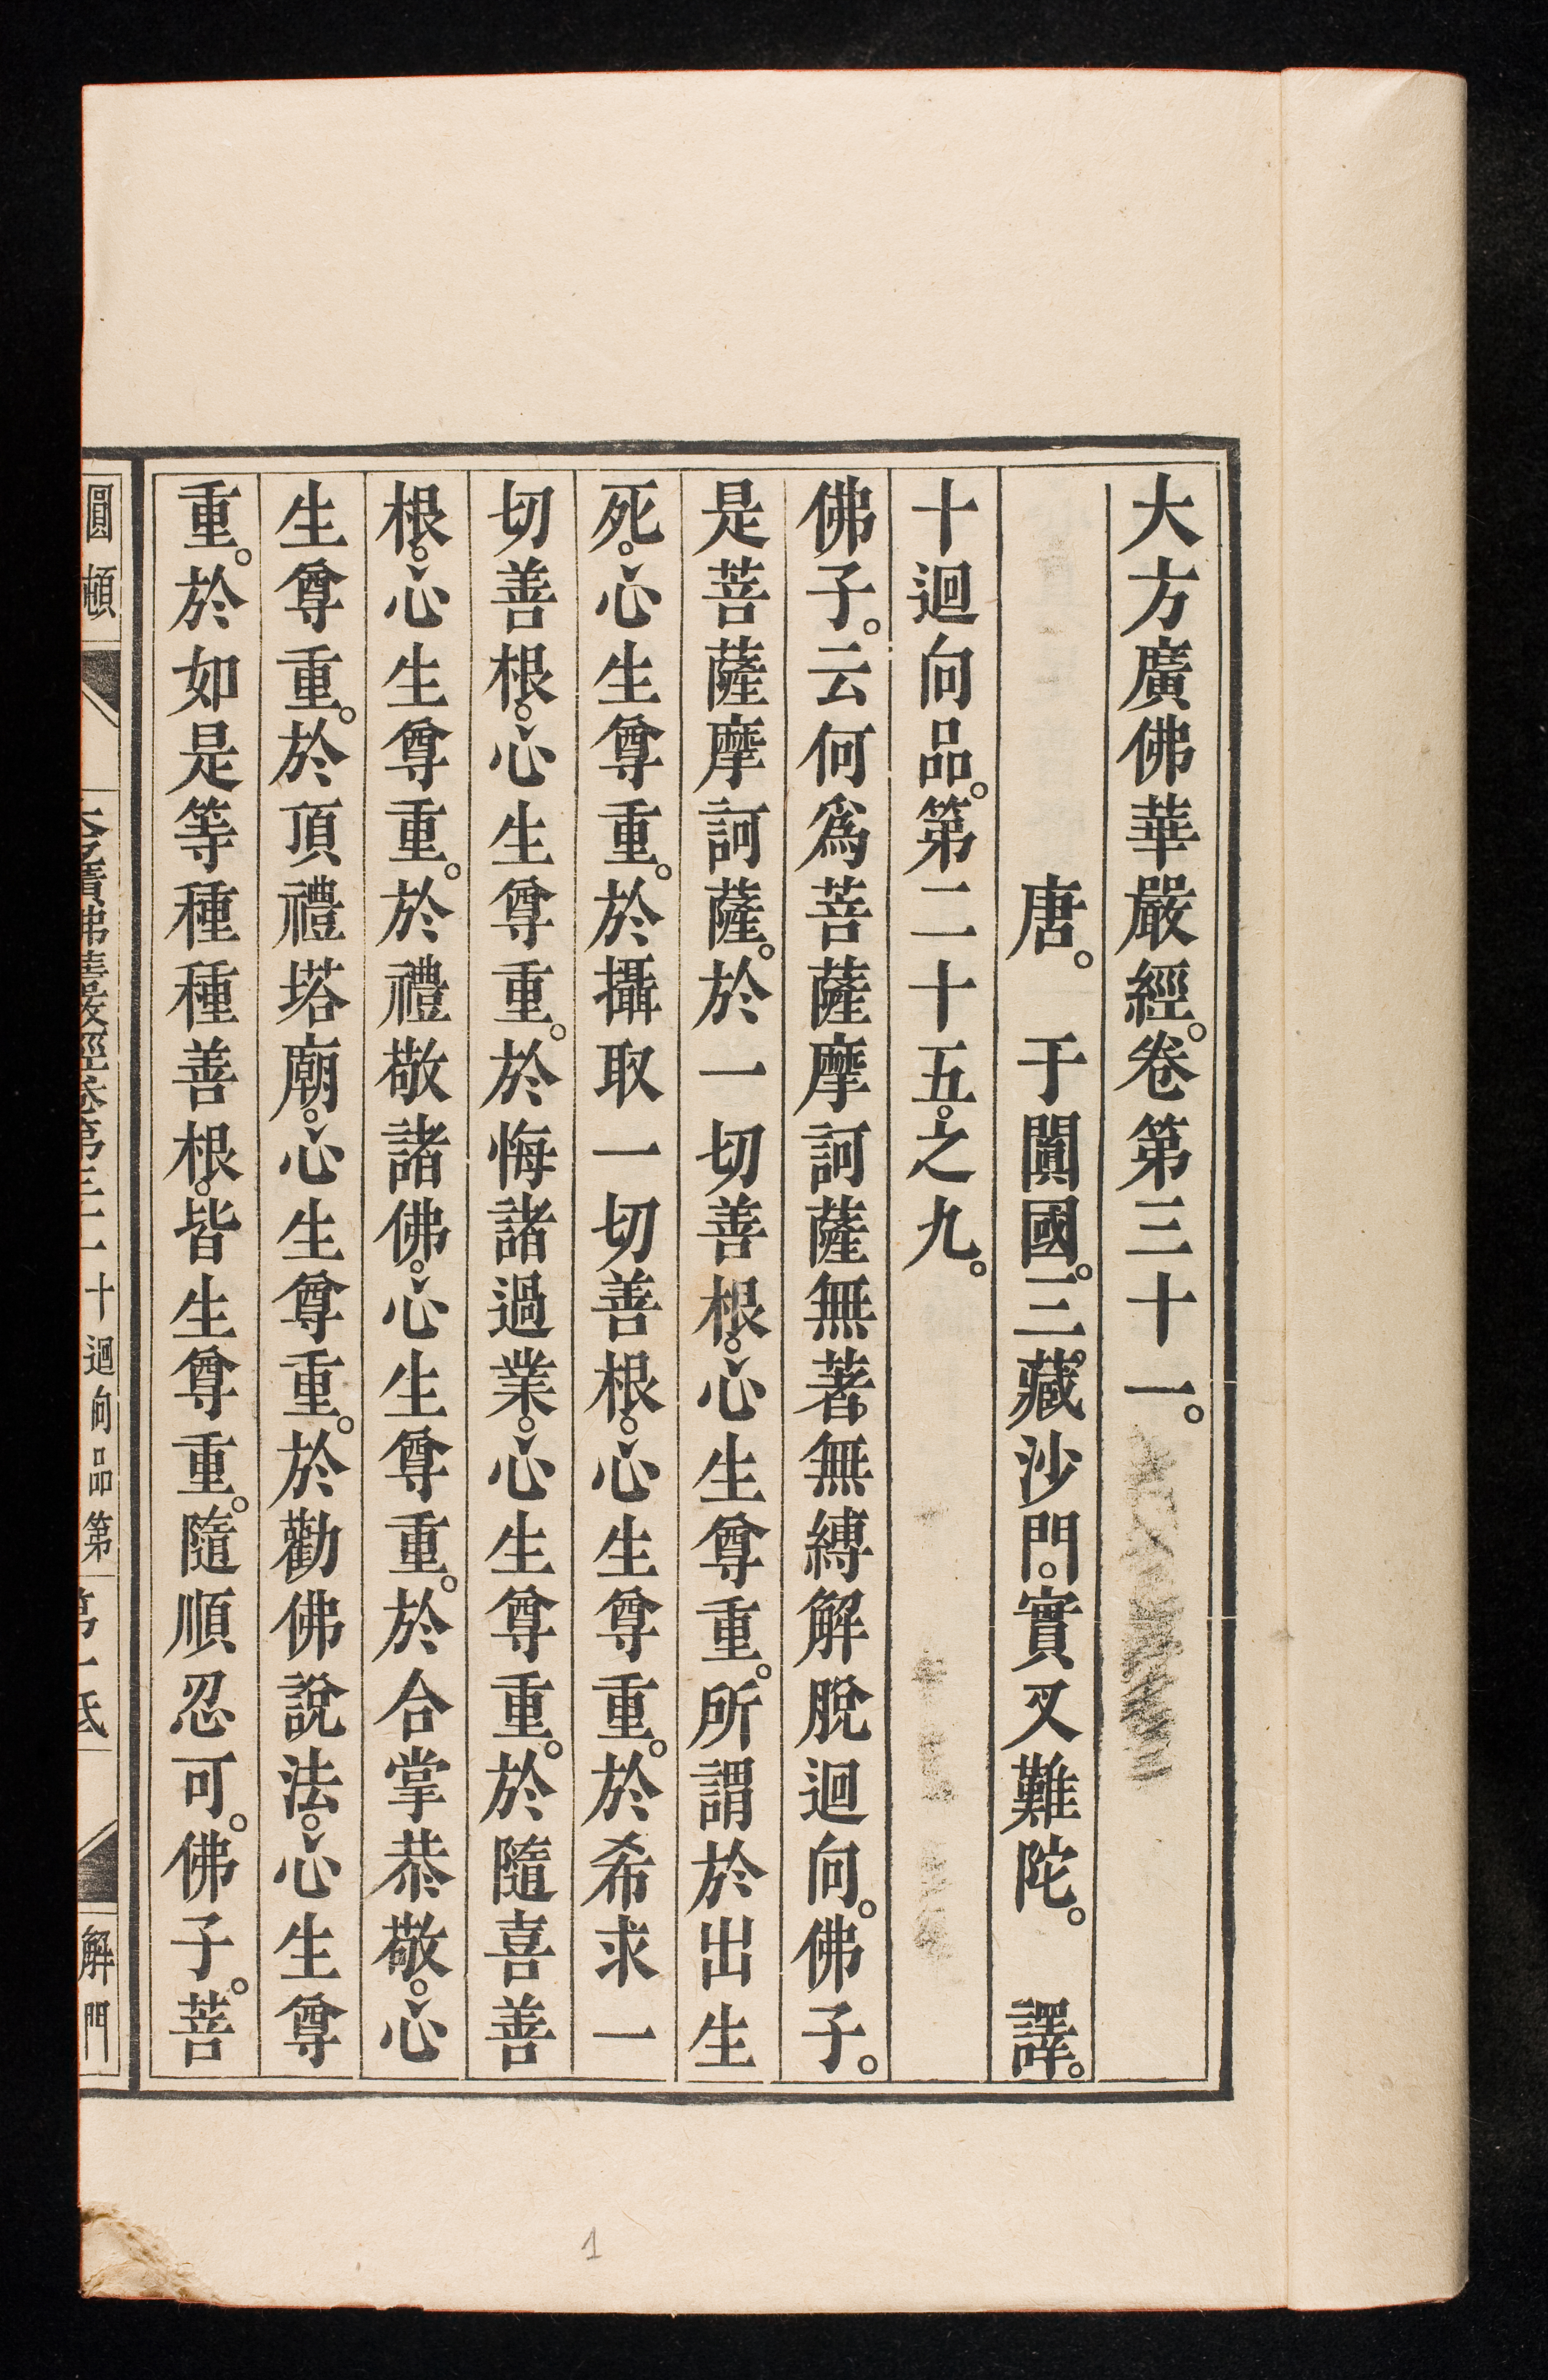 大方廣佛華嚴經。卷第三十一。
唐。于闐國。三。藏沙門。實叉難陀。譯。
十迴向品。第二十五。之九。
佛子。云何爲菩薩摩訶薩無著無縛解脫迴向。佛子。
是菩薩摩訶薩。於一切善根。心生尊重。所謂於出生
死。心生尊重。於攝取一切善根。心生尊重。於希求一
切善根。心生尊重。於悔諸過業。心生尊重。於隨喜善
根。心生尊重。於禮敬諸佛。心生尊重。於合掌恭敬。心
生尊重。於頂禮塔廟。心生尊重。於勸佛說法。心生尊
重。於如是等種種善根。皆生尊重。隨順忍可。佛子。菩
圓頓 大方廣佛華嚴經卷第三十一 十迴向品第 第一紙 解門
1